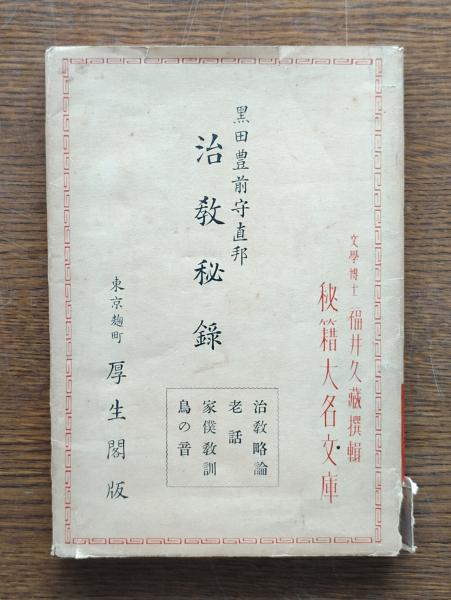 文學博士 福井久藏撰輯
秘籍大名文庫
黒田豊前守直邦
治教秘錄
治教略論
老話
家僕教訓
鳥の音
東京麹町 厚生閣版